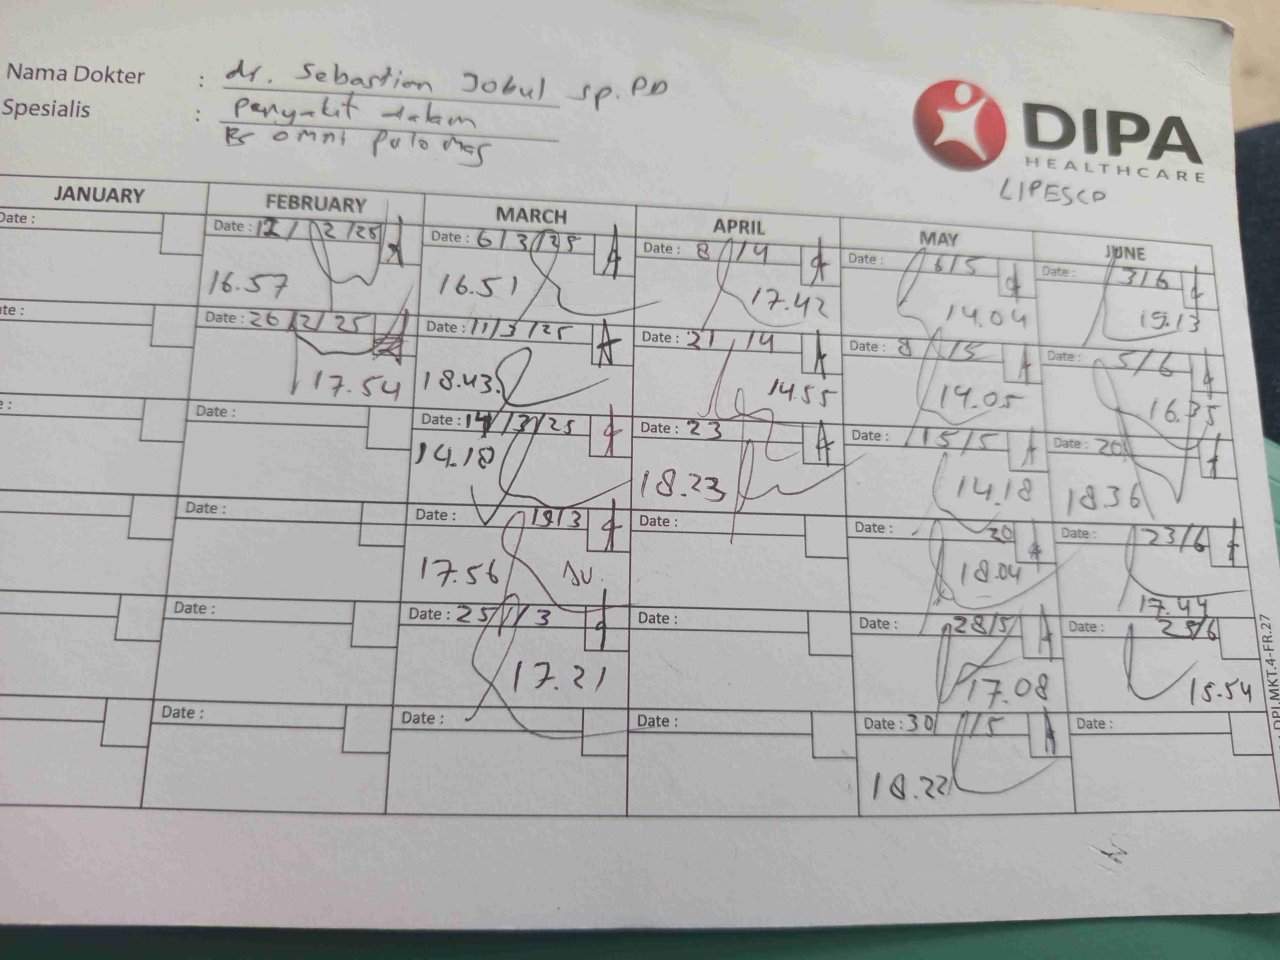 Nama Dokter : dr. Sebastian Jobul sp.PD
Spesialis : Penyakit dalam
RS omni pulo mas
DIPA
HEALTHCARE
LIPESCO
JANUARY FEBRUARY MARCH APRIL MAY JUNE
Date : Date : 12/2/25 Date : 6/3/25 Date : 8/4 Date : 6/5 Date : 3/6
16.57 16.51 17.42 14.04 19.13
Date : 26/2/25 Date : 11/3/25 Date : 21/4 Date : 8/5 Date : 5/6
17.54 18.43 14.55 14.05 16.35
Date : Date : 14/3/25 Date : 23 Date : 15/5 Date : 20
14.18 18.23 14.18 18.36
Date : Date : 19/3 Date : Date : 20 Date : 23/6
17.56 18.04 17.44
Date : Date : 25/3 Date : Date : 28/5 Date : 25/6
17.21 17.08 15.54
Date : Date : Date : Date : 30/5 Date :
18.22
DPI.MKT.4-FR.27